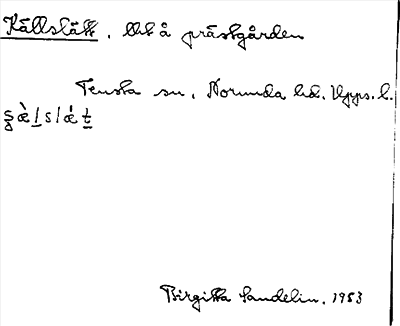 Källslätt, lht å prästgården
Tensta sn. Norunda hd. Upps. l.
Birgitta Sandelin. 1983